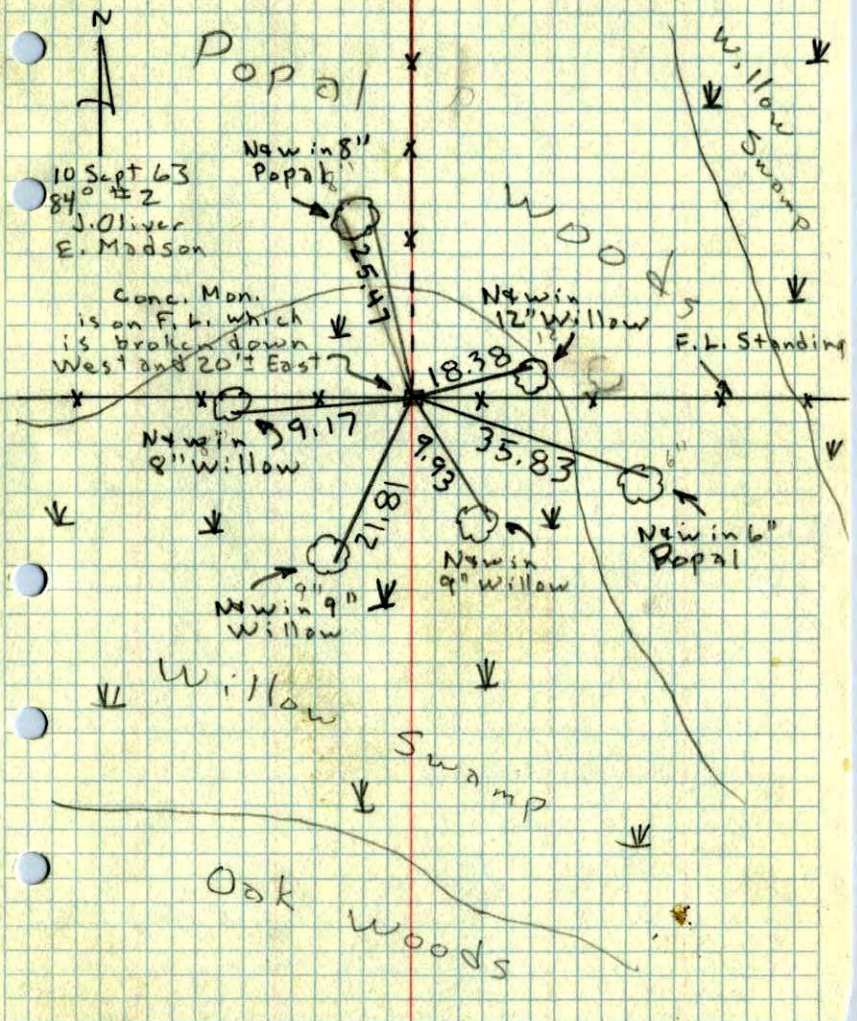 N
Popal
Willow
Swamp
N&W in 8"
Popal
8"
10 Sept 63
84° ±2
J. Oliver
E. Madson
Woods
25.47
Conc. Mon.
is on F. L. which
is broken down
West and 20'± East
N&W in
12" Willow
12"
F. L. Standing
18.38
9.17
N&W in
8" Willow
9.93
35.83
6"
21.81
N&W in 6"
Popal
N&W in
9" Willow
9"
N&W in 9"
Willow
Willow
Swamp
Oak
Woods